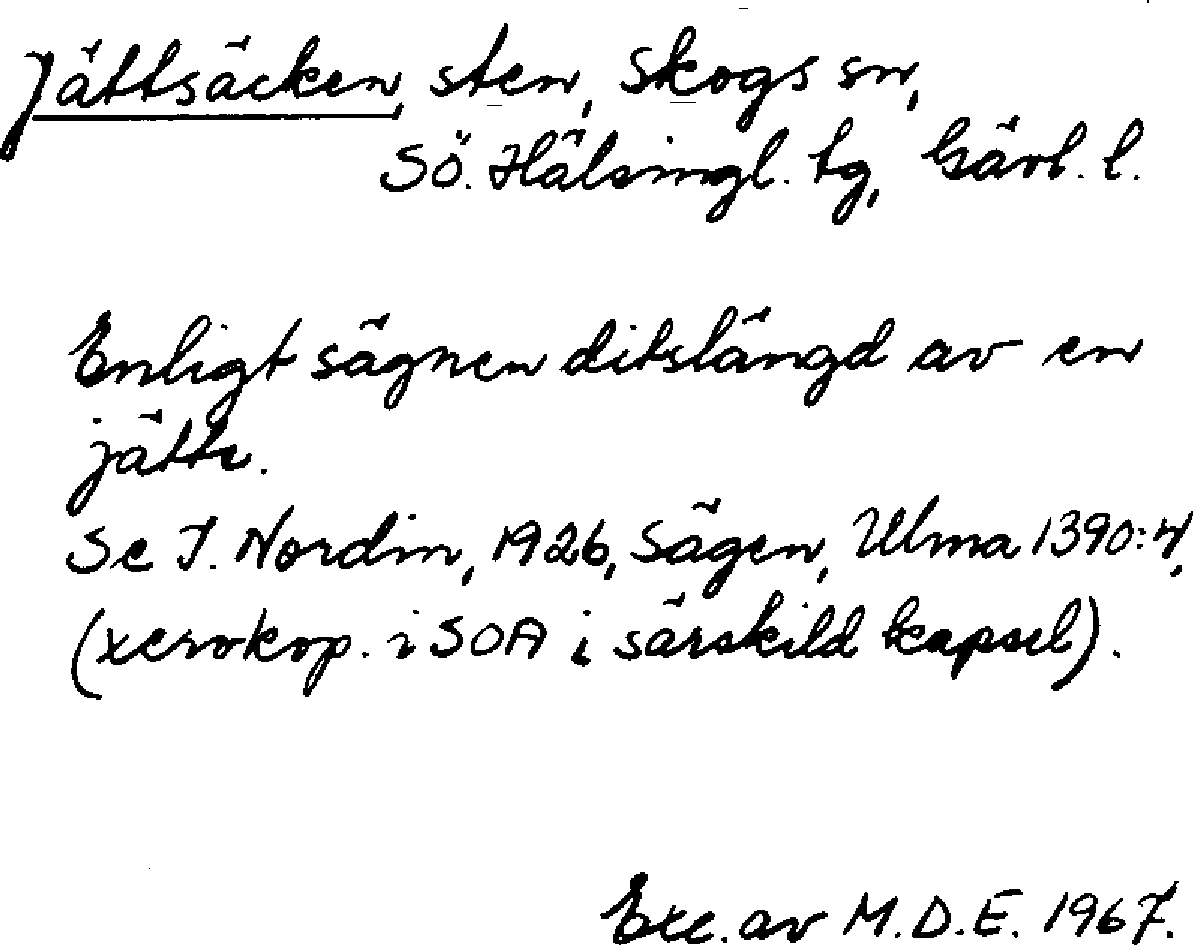 Jättsäcken, sten, Skogs sn,
Sö. Hälsingl. tg, Gävl. l.
Enligt sägnen ditslängd av en
jätte.
Se I. Nordin, 1926, Sägen, Ulma 1390:4,
(xerokop. i SOA i särskild kapsel).
Exc. av M.D.E. 1967.